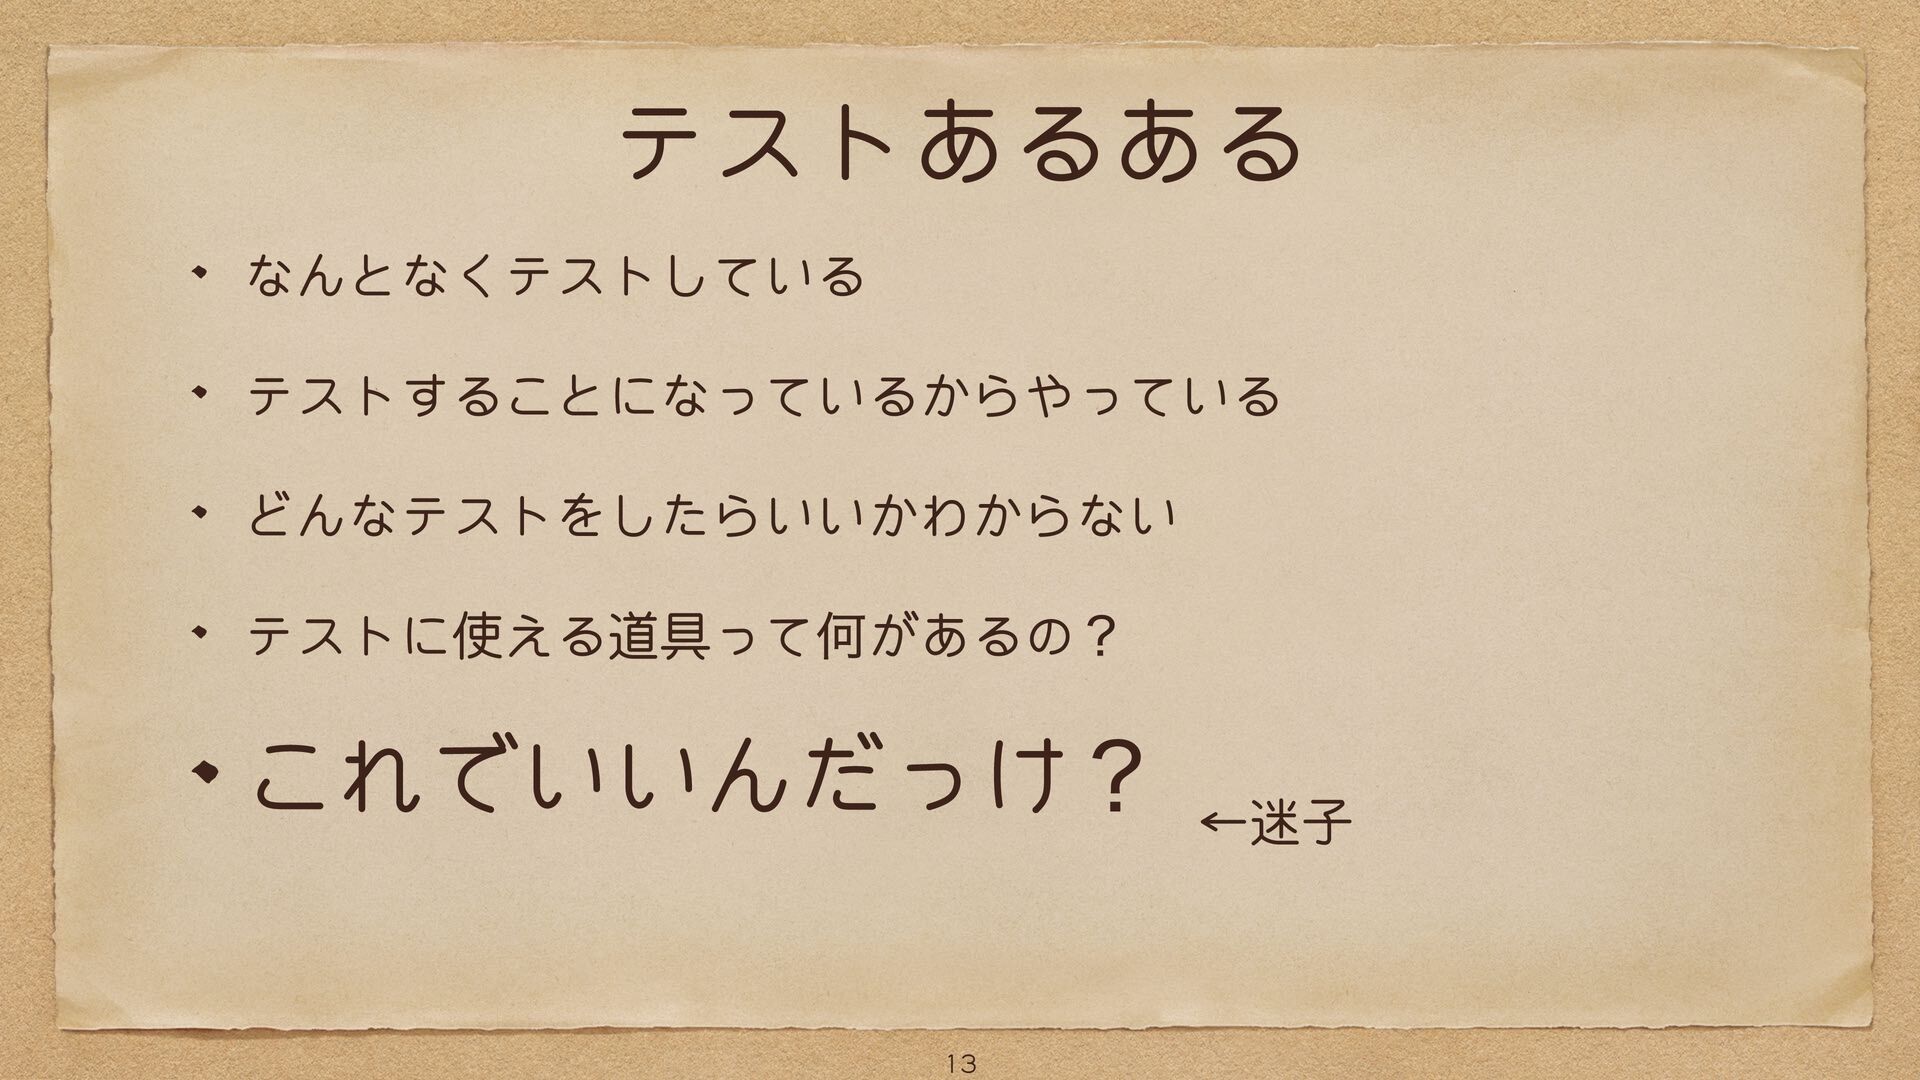 テストあるある
・ なんとなくテストしている
・ テストすることになっているからやっている
・ どんなテストをしたらいいかわからない
・ テストに使える道具って何があるの？
・ これでいいんだっけ？
←迷子
13